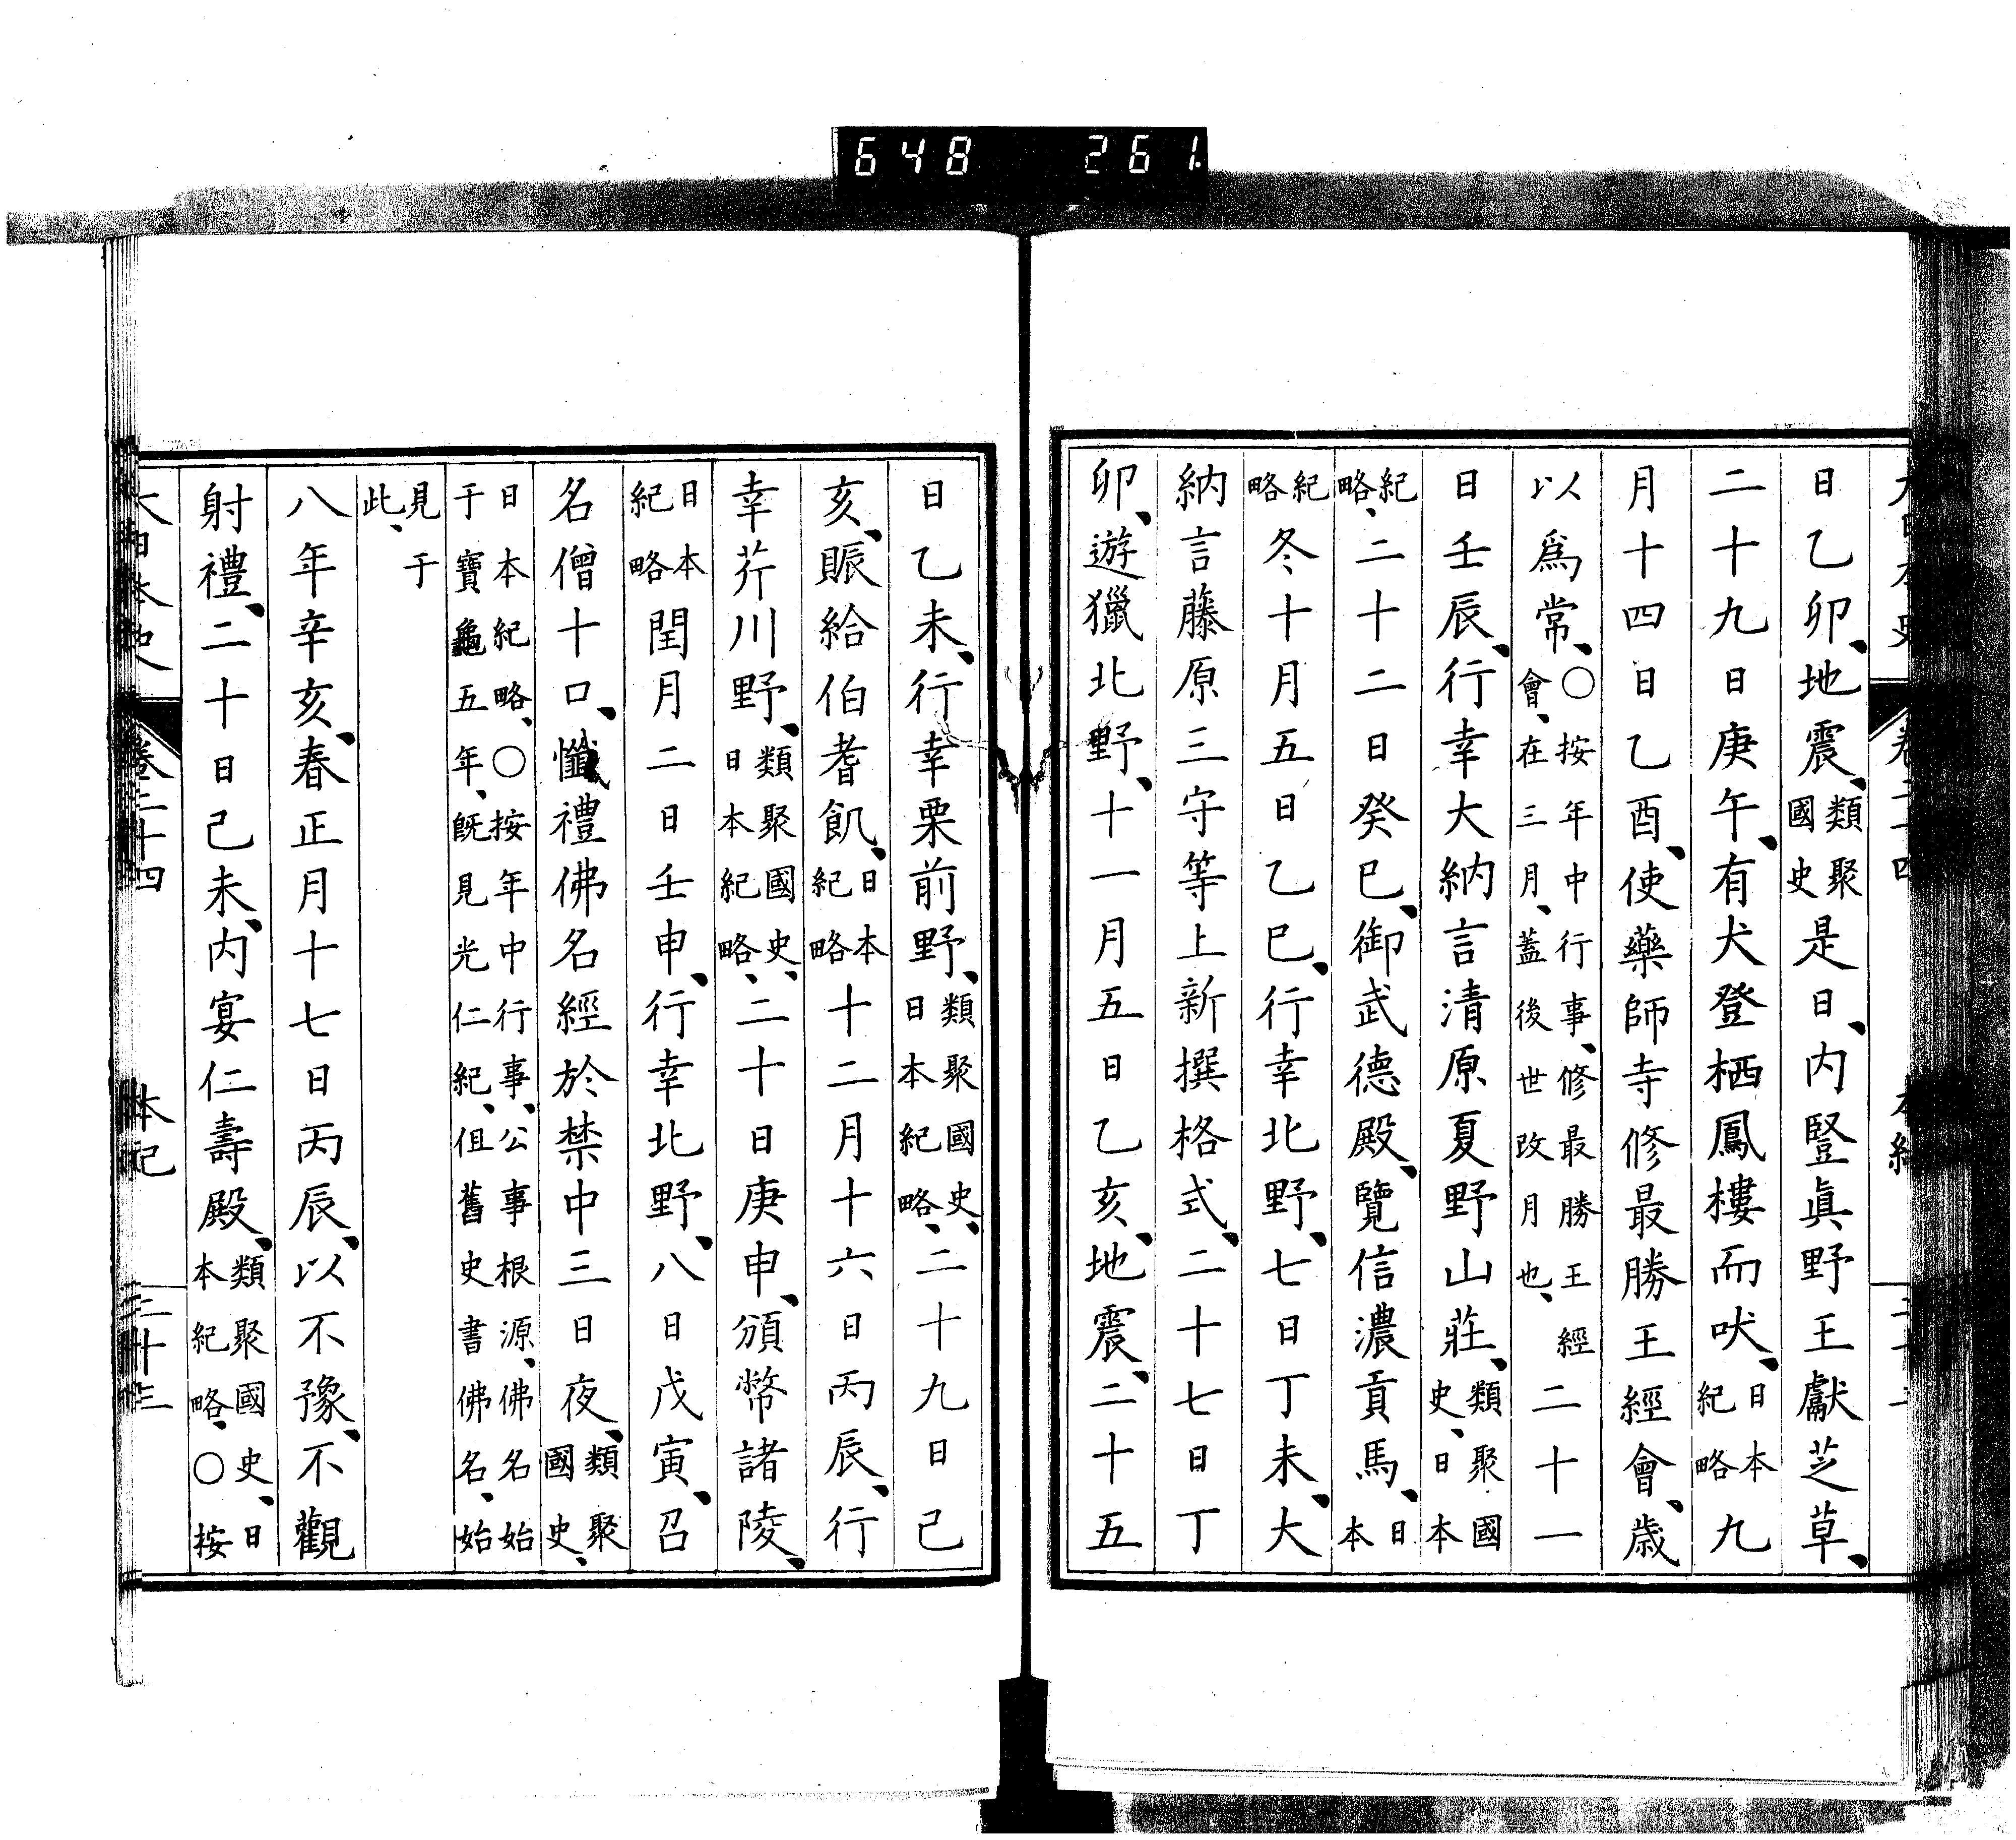 648 261
日乙卯、地震、類聚國史是日、内豎眞野王獻芝草、
二十九日庚午、有犬登栖鳳樓而吠、日本紀略九
月十四日乙酉、使藥師寺修最勝王經會、歳
以爲常、○按年中行事、修最勝王經會、在三月、蓋後世改月也、二十一
日壬辰、行幸大納言清原夏野山莊、類聚國史、日本
紀略、二十二日癸巳、御武德殿、覽信濃貢馬、日本
紀略冬十月五日乙巳、行幸北野、七日丁未、大
納言藤原三守等上新撰格式、二十七日丁
卯、遊獵北野、十一月五日乙亥、地震、二十五
日乙未、行幸栗前野、類聚國史、日本紀略、二十九日己
亥、賑給伯耆飢、日本紀略十二月十六日丙辰、行
幸芥川野、類聚國史、日本紀略、二十日庚申、頒幣諸陵、
日本紀略閏月二日壬申、行幸北野、八日戊寅、召
名僧十口、懺禮佛名經於禁中三日夜、類聚國史、
日本紀略、○按年中行事、公事根源、佛名始于寶龜五年、既見光仁紀、但舊史書佛名、始
見于此、
八年辛亥、春正月十七日丙辰、以不豫、不觀
射禮、二十日己未、内宴仁壽殿、類聚國史、日本紀略、○按
大日本史 卷二十四 本紀